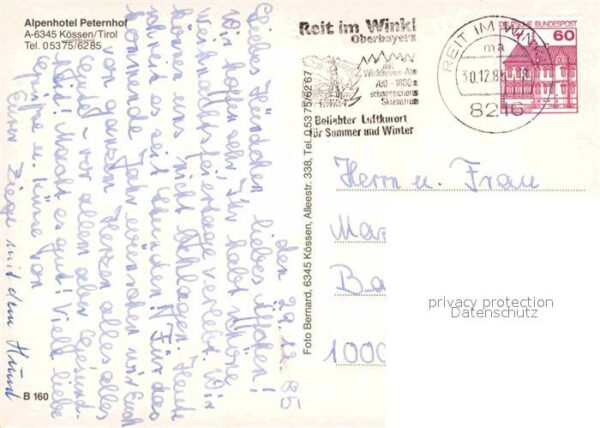 Alpenhotel Peternhof
A-6345 Kössen/Tirol
Tel. 05375/6285
den 29.12.85
Liebes
Wir hoffen sehr Ihr habt schöne
Weihnachtsfeiertage verlebt. Wir
können uns nicht beklagen. Heute
ist es seit
kommende Jahr wünschen wir Euch
von ganzem Herzen alles alles
Gute - vor allem aber Gesund-
heit! Macht es gut! Viele liebe
Grüße u. Küsse von
Eurer Ziege mit dem Hund
B 160
Foto Bernard, 6345 Kössen, Alleestr. 338, Tel. 05375/6267
Reit im Winkl
Oberbayern
700 - 1800 m
Beliebter Luftkurort
für Sommer und Winter
REIT IM WINKL
ma
30.12.85
8216
DEUTSCHE BUNDESPOST
60
Herrn u. Frau
Mar
Ba
1000
privacy protection
Datenschutz